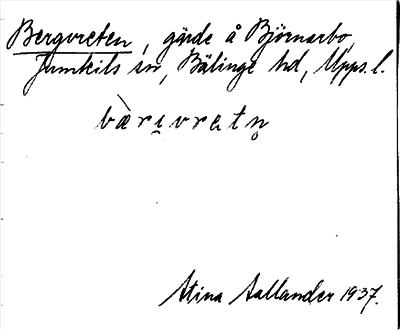 Bergvreten, gärde å Björnarbo,
Jumkils sn, Bälinge hd, Upps. l.
bæ̀rɪvretn̥
Stina Aallander 1937.